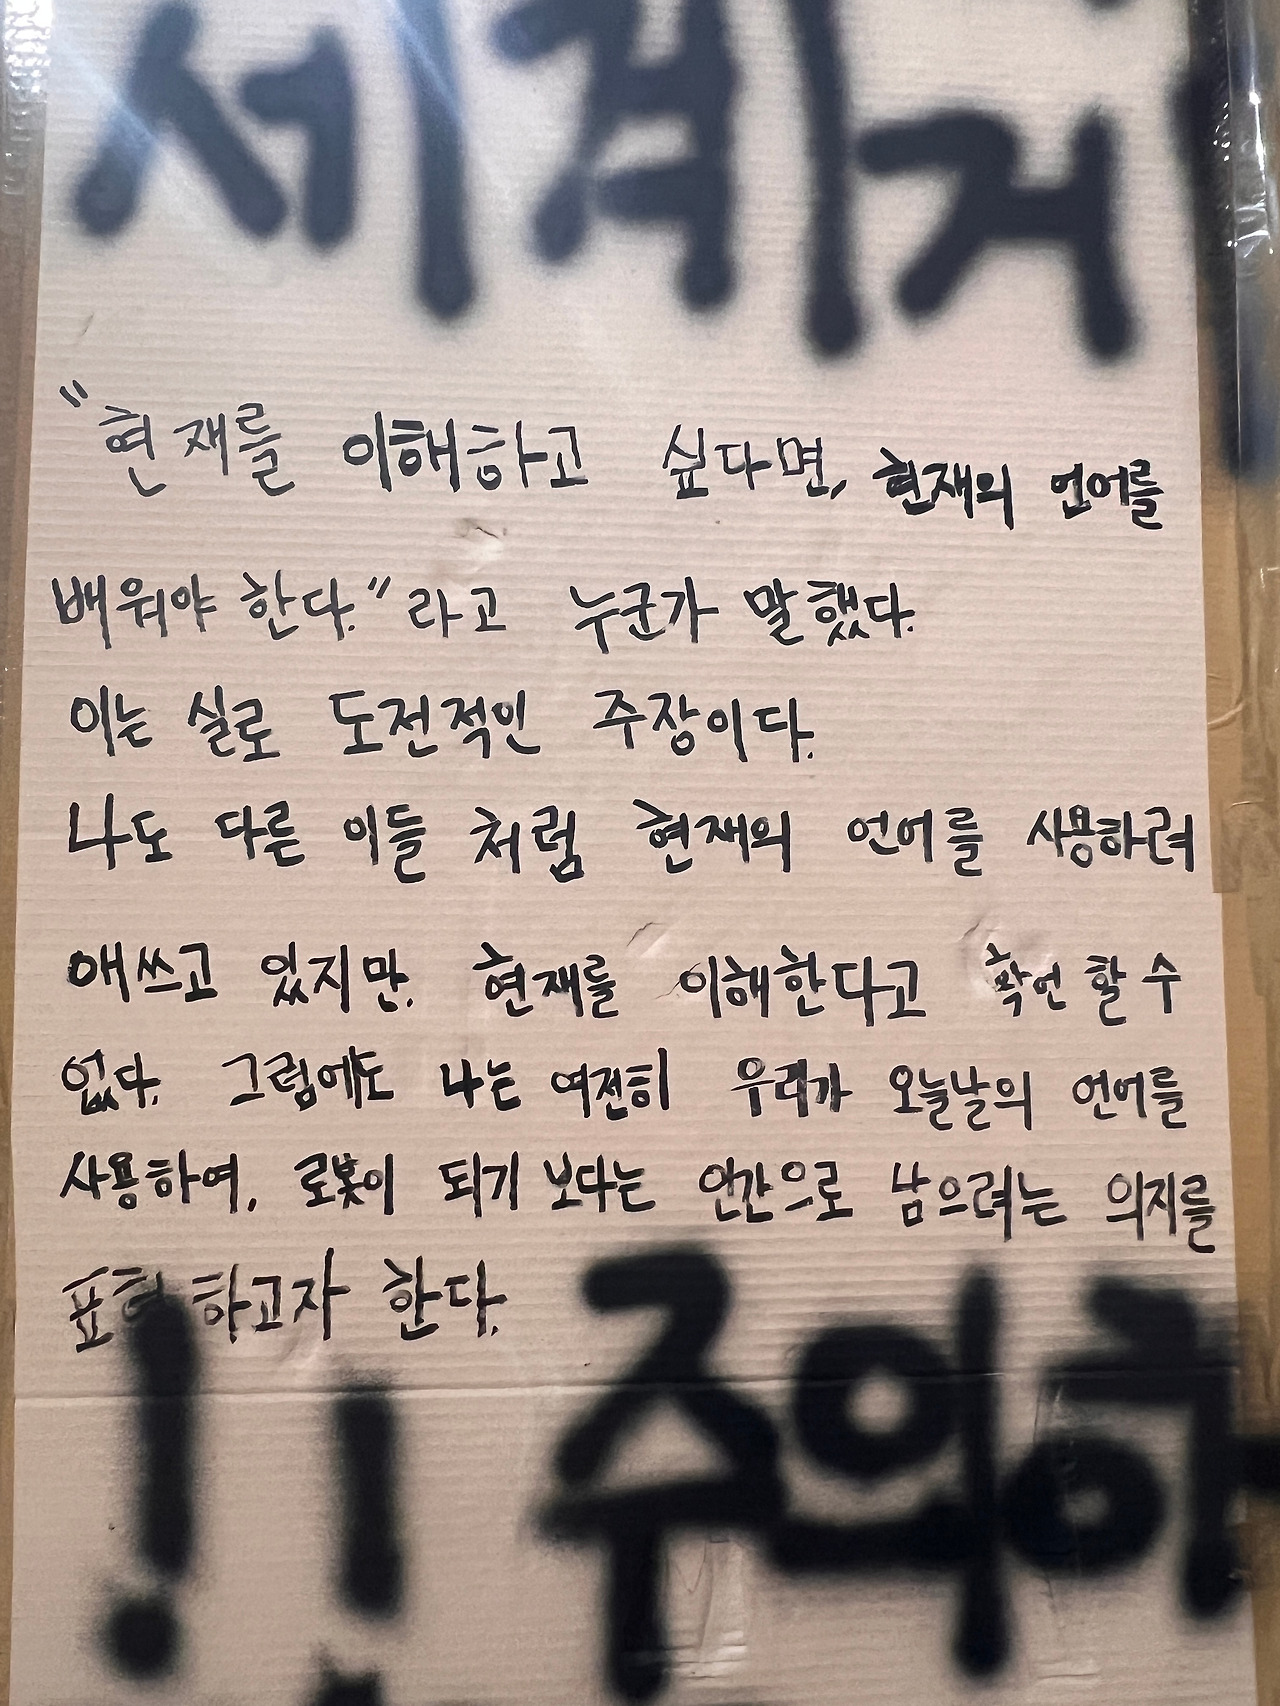 세계
"현재를 이해하고 싶다면, 현재의 언어를
배워야 한다."라고 누군가 말했다.
이는 실로 도전적인 주장이다.
나도 다른 이들 처럼 현재의 언어를 사용하려
애쓰고 있지만, 현재를 이해한다고 확언 할 수
없다. 그럼에도 나는 여전히 우리가 오늘날의 언어를
사용하여, 로봇이 되기 보다는 인간으로 남으려는 의지를
표현하고자 한다.
!! 주의하